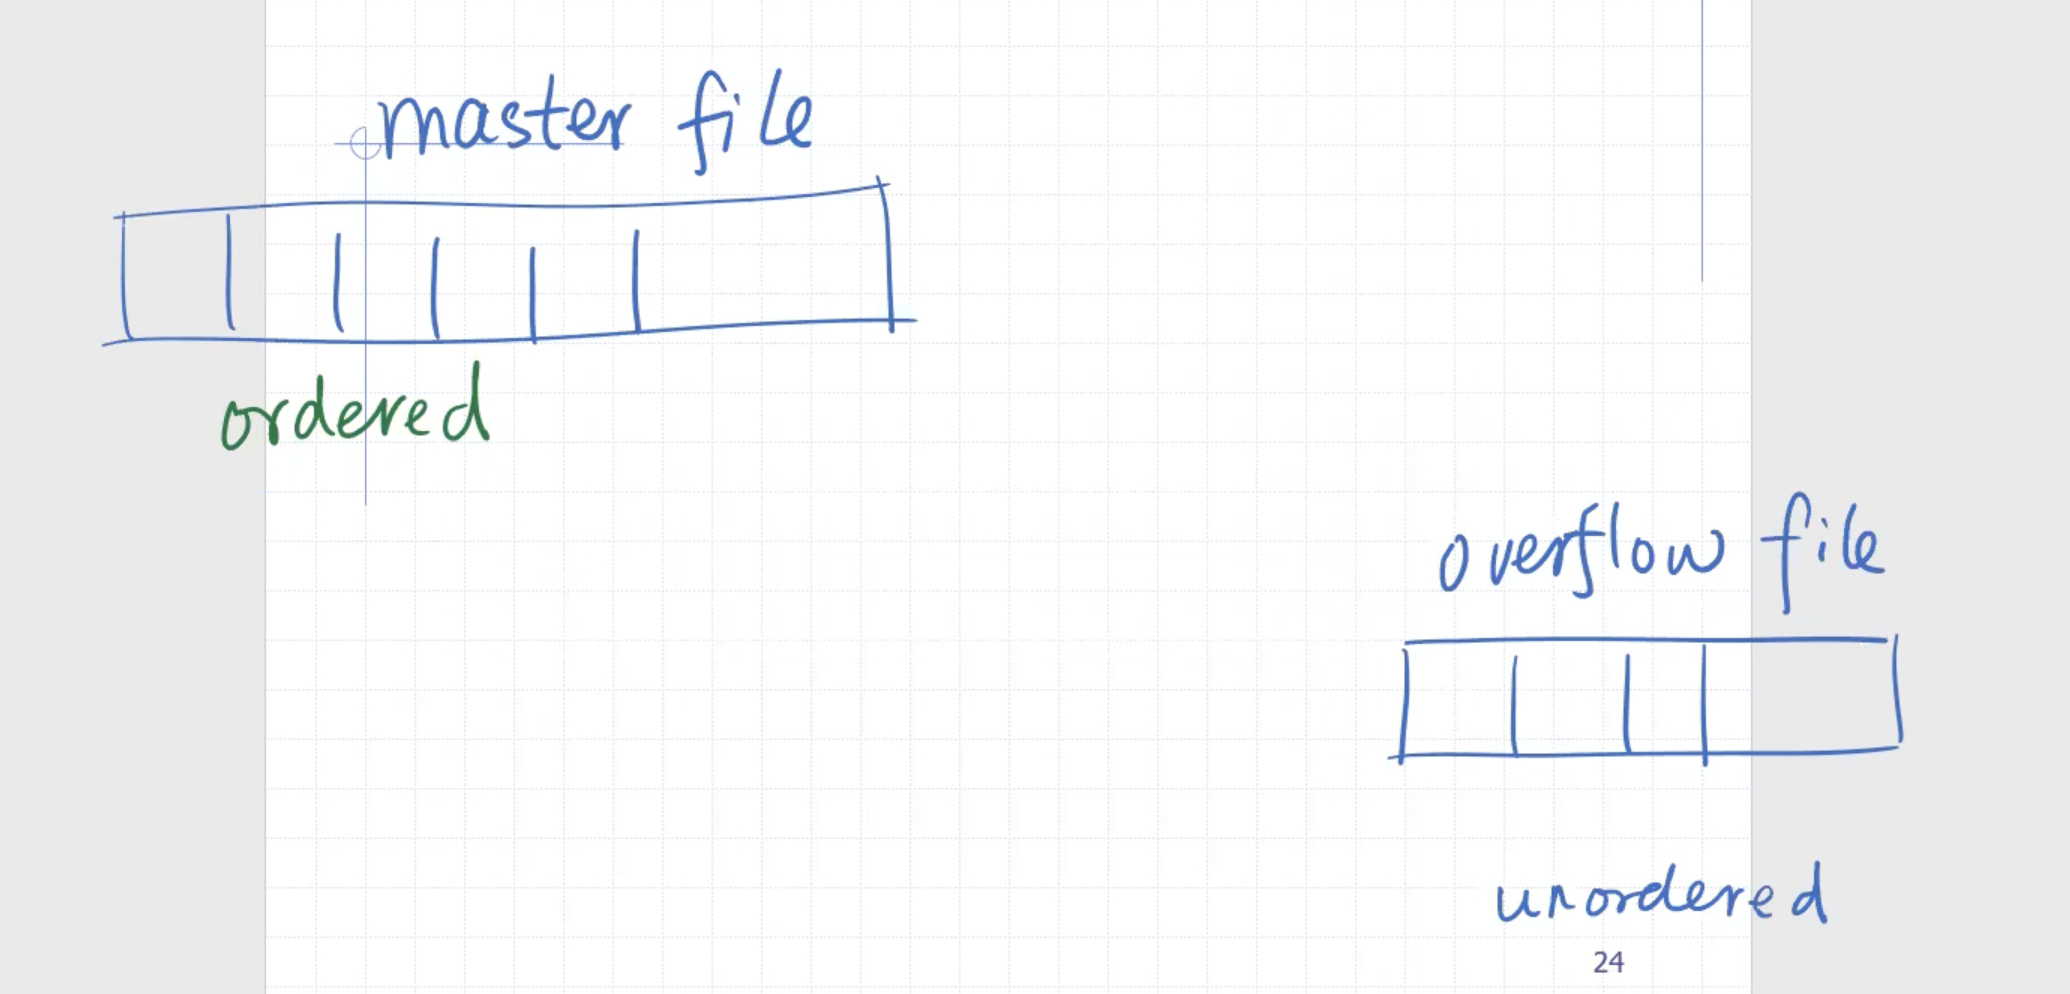 master file
ordered
overflow file
unordered
24